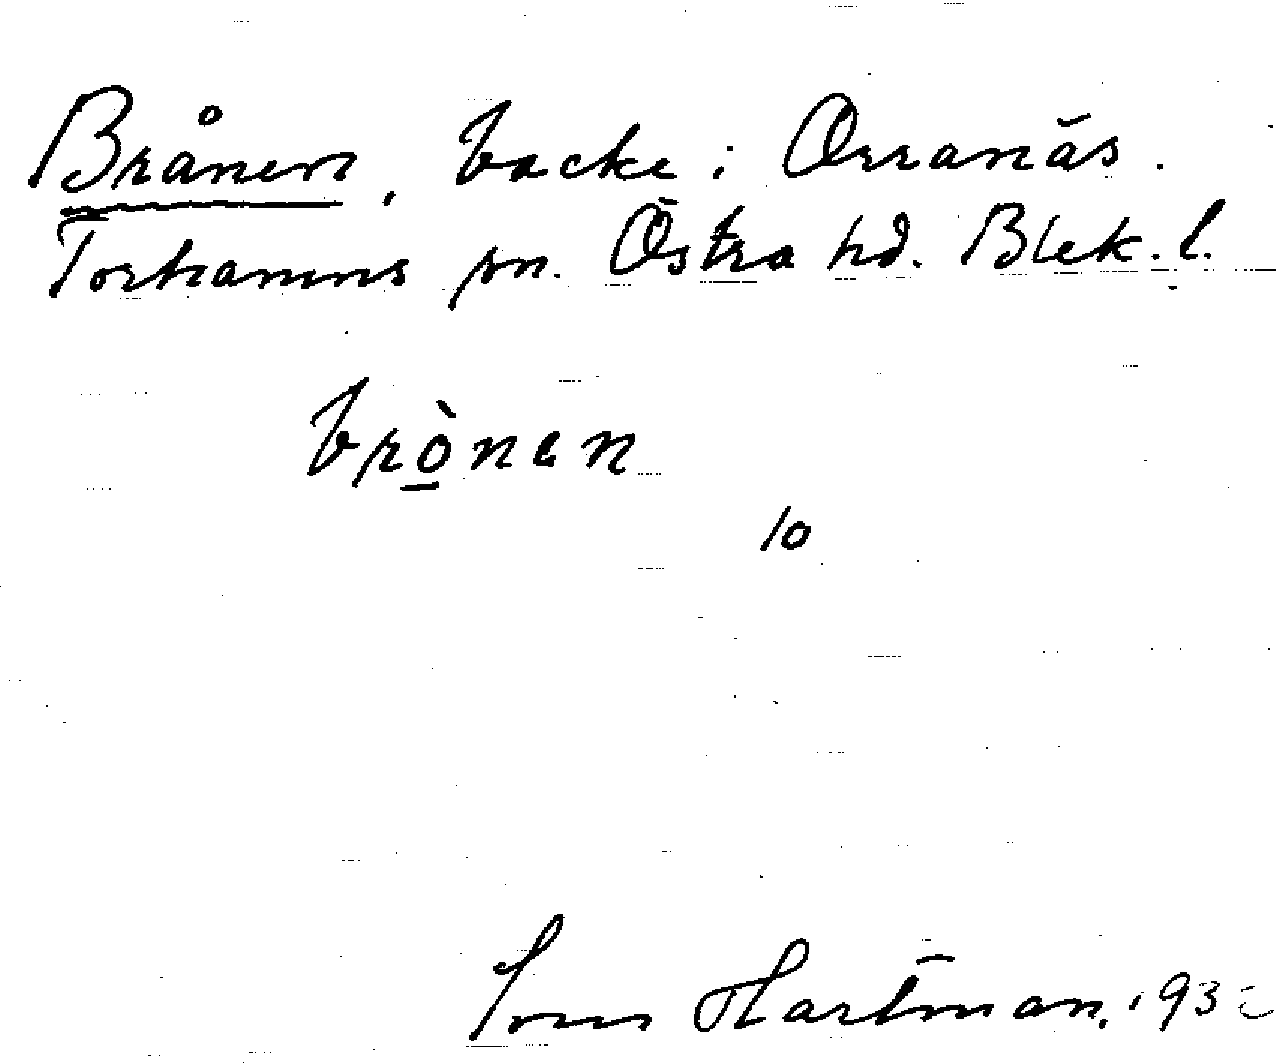 Brånen, backe i Orranäs.
Torhamns sn. Östra hd. Blek. l.
brò̲nen
10
Hartman. 193